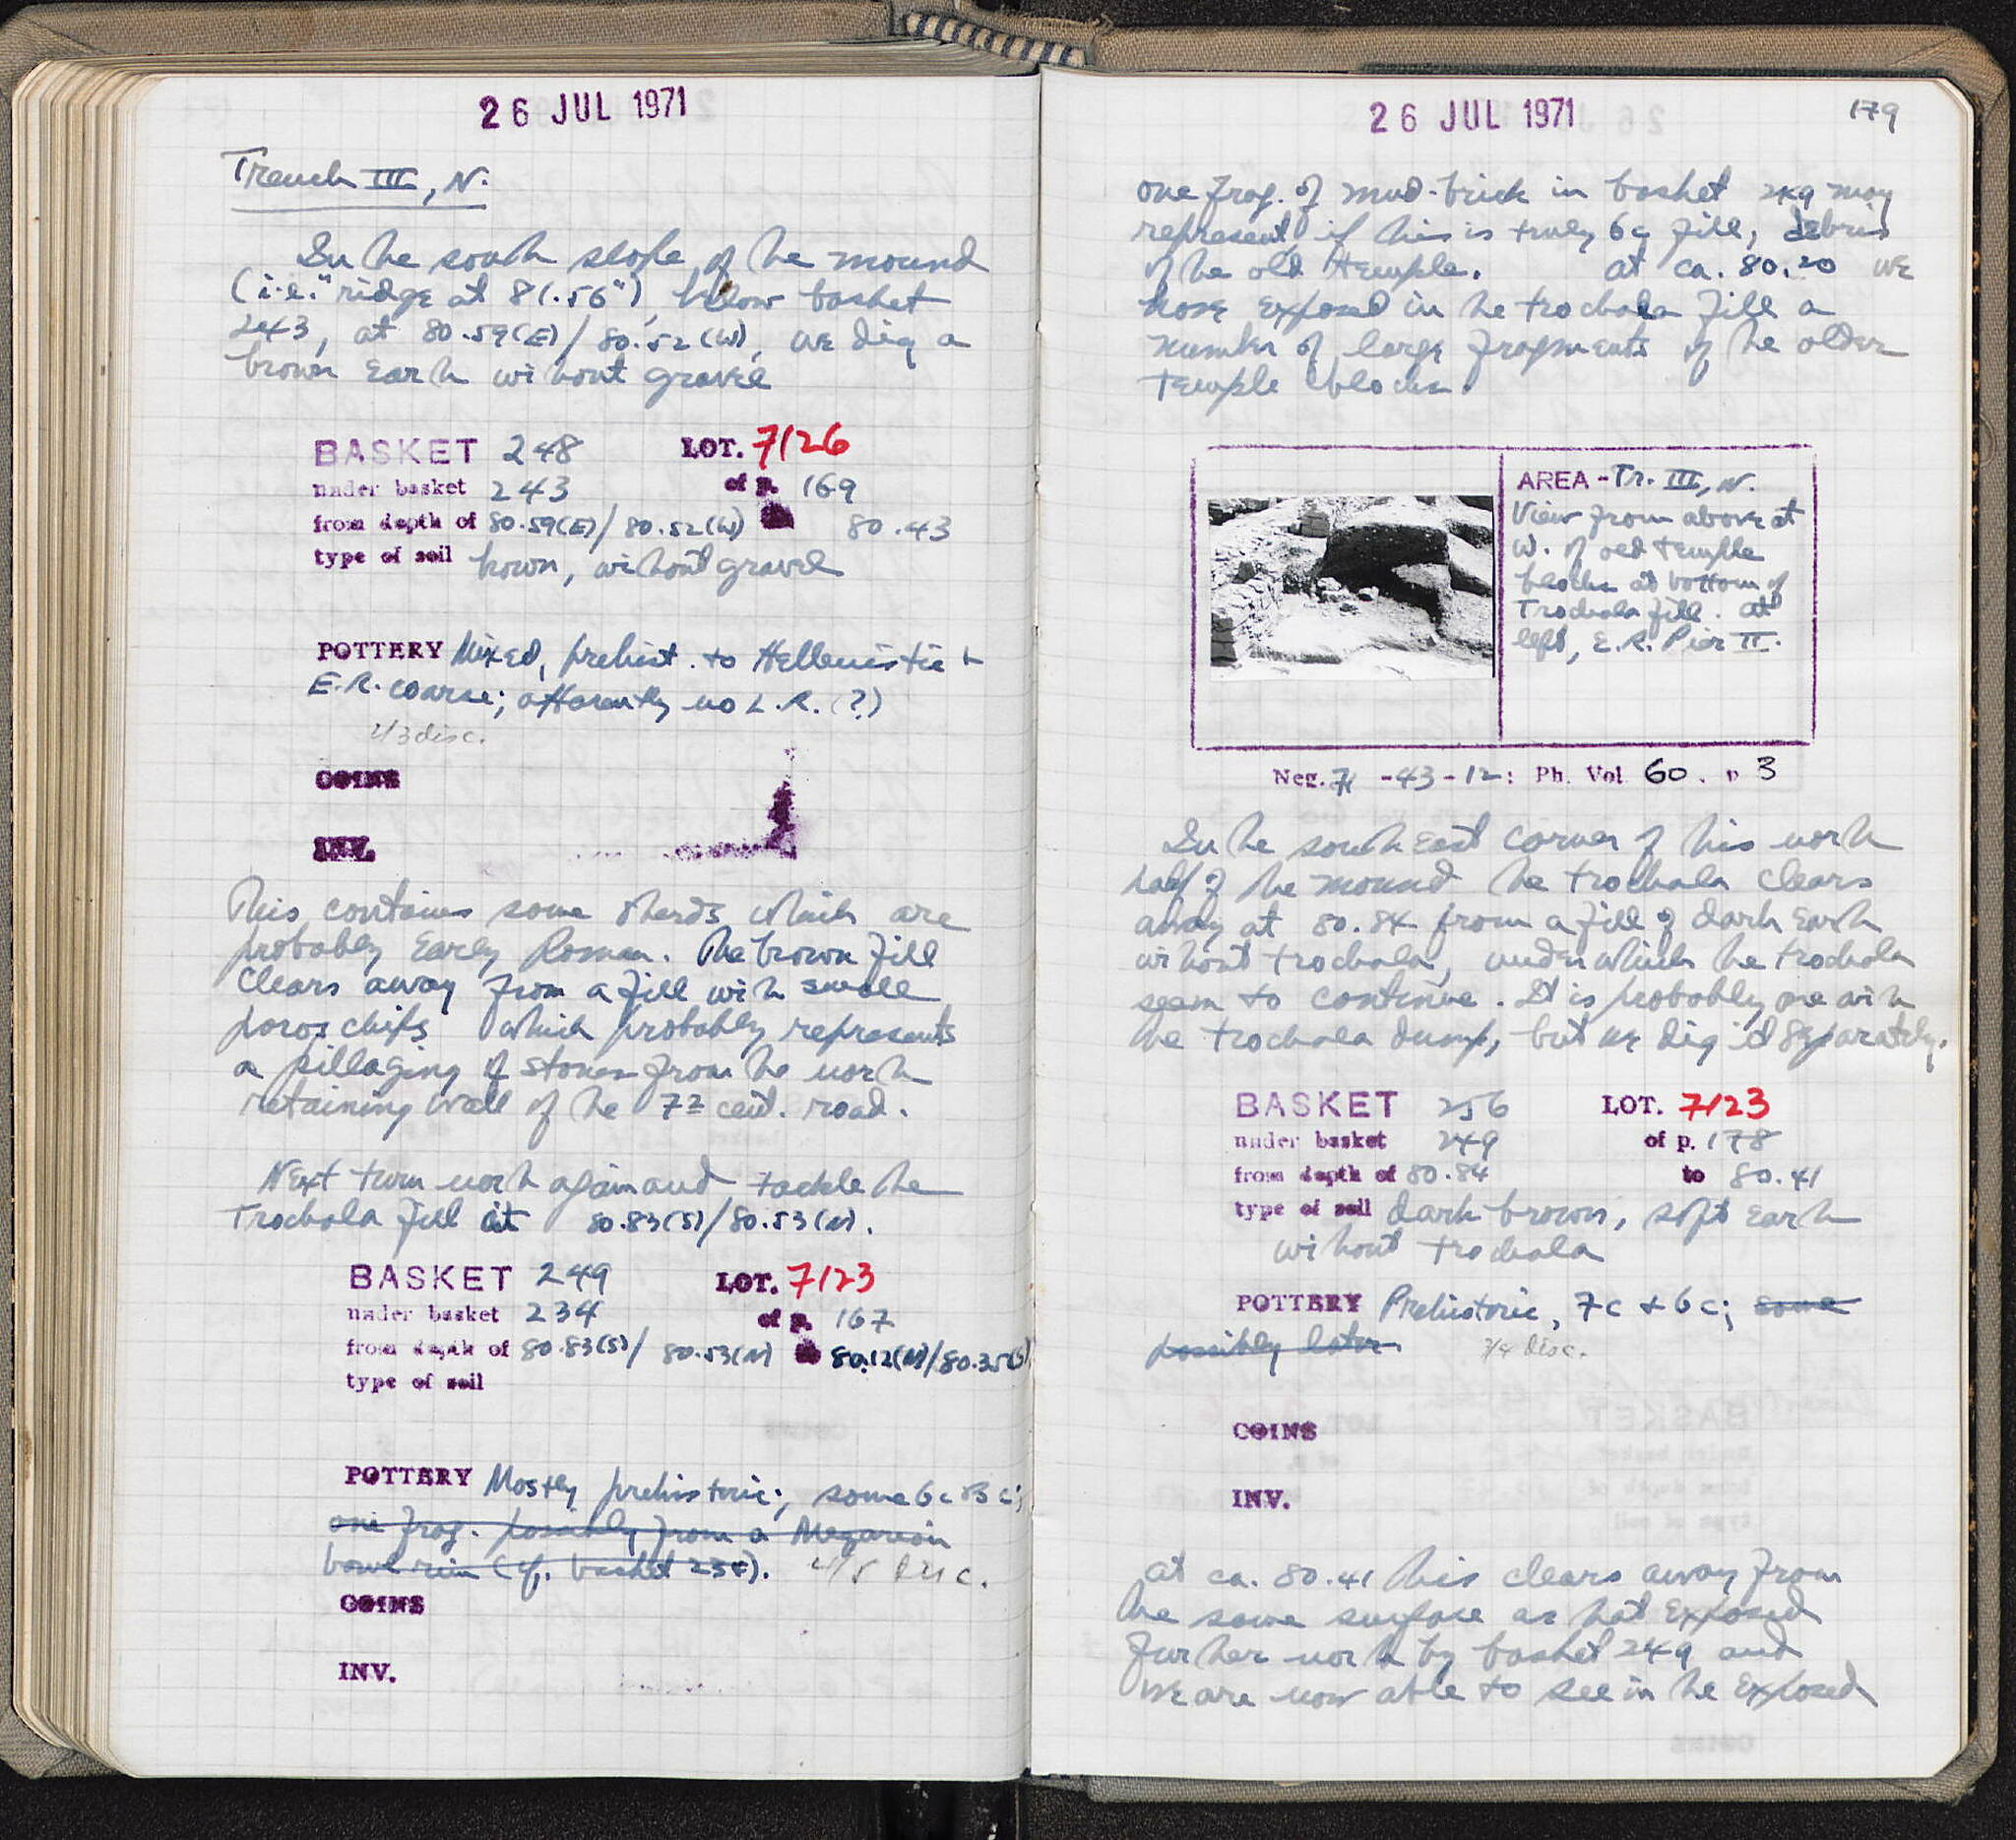 26 JUL 1971
Trench III, N.
In the south slope of the mound
(i.e. "ridge at 81.56"), below basket
243, at 80.59(E)/80.52(W), we dig a
brown earth without gravel
BASKET 248 LOT. 7126
under basket 243 of p. 169
from depth of 80.59(E)/80.52(W) 80.43
type of soil brown, without gravel
POTTERY Mixed, prehist. to Hellenistic +
E.R. coarse; apparently no L.R. (?)
2/3 disc.
COINS
INV.
This contains some sherds which are
probably Early Roman. The brown fill
clears away from a fill with small
poros chips which probably represents
a pillaging of stones from the north
retaining wall of the 7th cent. road.
Next turn north again and tackle the
Trochala fill at 80.83(S)/80.53(N).
BASKET 249 LOT. 7123
under basket 234 of p. 167
from depth of 80.83(S)/ 80.53(N) 80.12(N)/80.35(S)
type of soil
POTTERY Mostly prehistoric; some 6c BC;
one frag. possibly from a Megarian
bowl rim (cf. basket 234). 4/5 disc.
COINS
INV.
26 JUL 1971
179
one frag. of mud-brick in basket 249 may
represent, if this is truly 6c fill, debris
of the old temple. at ca. 80.20 we
have exposed in the trochala fill a
number of large fragments of the older
temple blocks.
AREA - Tr. III, N.
View from above at
W. of old temple
blocks at bottom of
Trochala fill. at
left, E.R. Pier II.
Neg. 71 -43-12: Ph. Vol 60. p 3
In the south east corner of this north
half of the mound the trochala clears
away at 80.84 from a fill of dark earth
without trochala, under which the trochala
seem to continue. It is probably one with
the trochala dump, but we dig it separately.
BASKET 256 LOT. 7123
under basket 249 of p. 178
from depth of 80.84 to 80.41
type of soil dark brown, soft earth
without trochala
POTTERY Prehistoric, 7c + 6c; some
possibly later. 3/4 disc.
COINS
INV.
at ca. 80.41 this clears away from
the same surface as that exposed
further north by basket 249 and
we are now able to see in the exposed